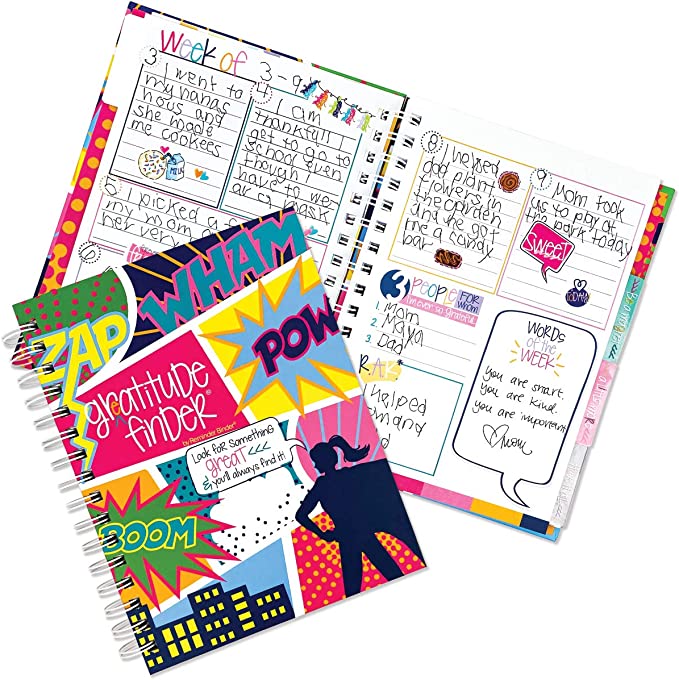 Week of 3-9
3
I went to
my nanas
hous and
she made
me cookees
MILK
4
I am
thankfull I
get to go to
school even
though I
have to we
ar a mask
I picked a
my mom
her very
8
I helped
dad plant
flowers in
the garden
and he got
me a candy
bar
9
Mom took
us to play at
the park today
SWEET
TODAY
3 PEOPLE FOR WHOM
I'm ever so grateful
1. Mom
2. Maya
3. Dad
R.A.K
I helped
WORDS
of the
WEEK
You are smart.
You are kind.
You are important
Mom
ZAP
WHAM
POW
greatitude
finder®
by Reminder Binder®
Look for Something
great <<<
& you'll always find it!
BOOM